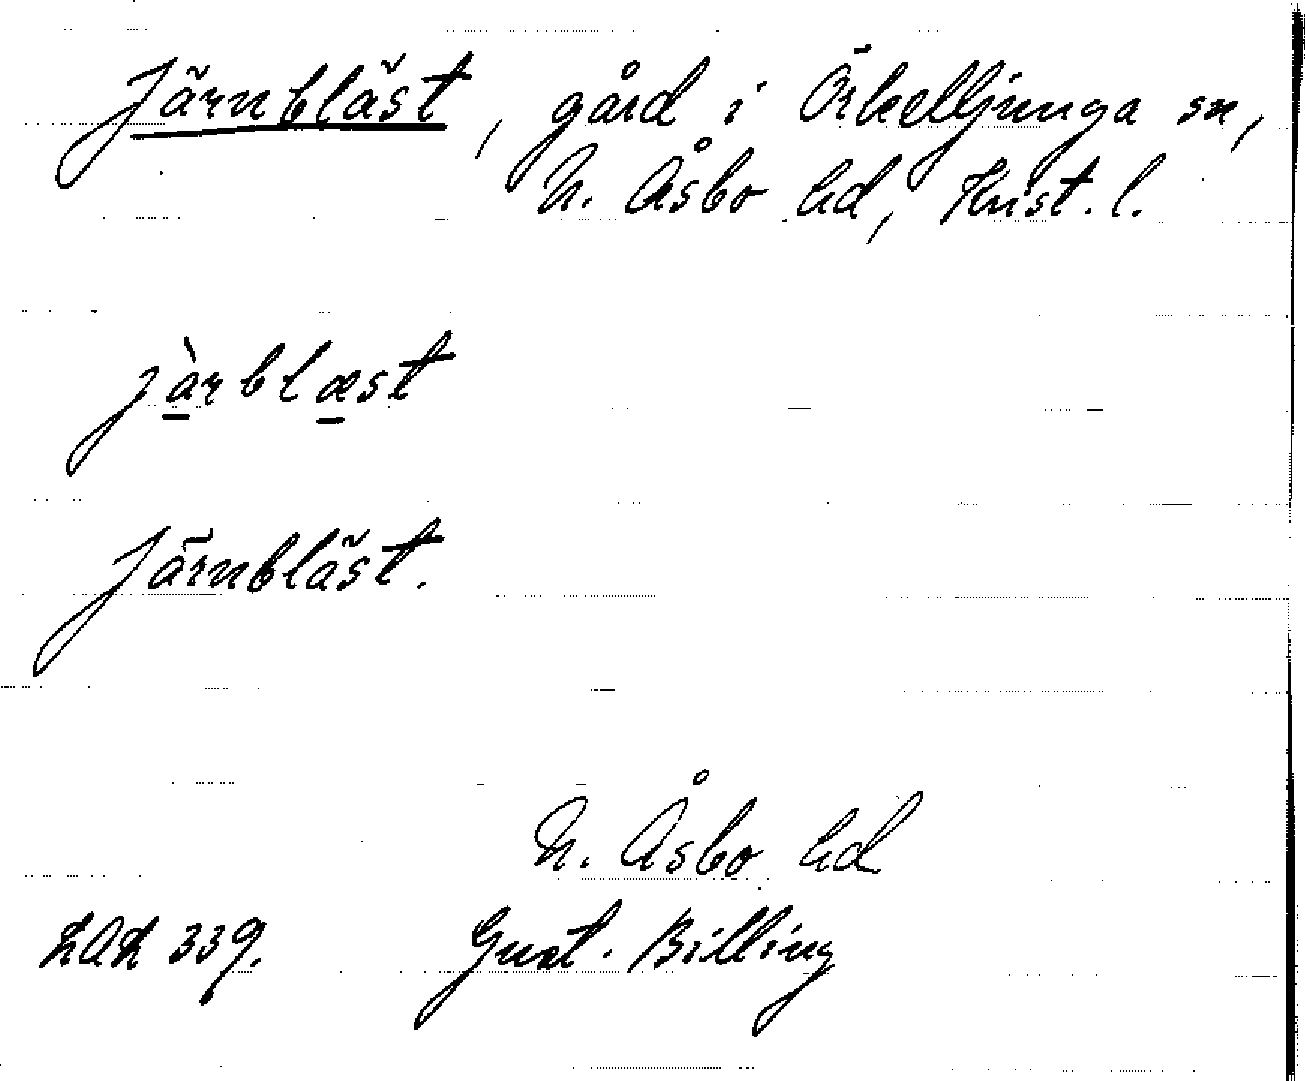 Järnbläst, gård i Örkelljunga sn,
N. Åsbo hd, Krist. l.
jàrblæst
Järnbläst.
N. Åsbo hd
339. Gust. Billing